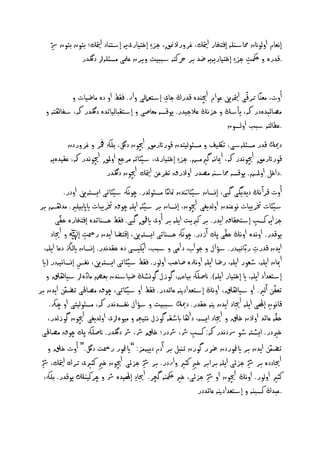 إنعام اولونان محاسنله إفتخار ايتمك، غرورلانمق، جزء إختيارى‌يه إستناد ايتمك؛ بتون بتون سرّ
قدره و حكمتِ جزء إختياريه‌يه ضد بر حركته سببيت ويرن علمى مسئله‌لر دگلدر.
أوت، معنًا ترقّى ايتمه‌ين عوام ايچنده قدرك جاىِ إستعمالى وار. فقط او ده ماضيات و
مصائبده‌در كه، يأسك و حزنك علاجيدر. يوقسه معاصى و إستقبالياتده دگلدر كه، سفاهته و
عطالته سبب اولسون.
ديمك قدر مسئله‌سى، تكليف و مسئوليتدن قورتارمق ايچون دگل، بلكه فخر و غروردن
قورتارمق ايچوندر كه، ايمانه گيرمش. جزء إختيارى، سيّئاته مرجع اولمق ايچوندر كه، عقيده‌يه
داخل اولمش. يوقسه محاسنه مصدر اولارق تفرعن ايتمك ايچون دگلدر.
أوت قرآنك ديديگى گبى، إنسان سيّئاتندن تمامًا مسئولدر. چونكه سيّئاتى ايسته‌ين اودر.
سيّئات تخريبات نوعندن اولديغى ايچون، إنسان بر سيّئه ايله چوق تخريبات ياپابيلير. مدهش بر
جزايه كسبِ إستحقاق ايدر. بر كبريت ايله بر أوى ياقمق گبى. فقط حسناتده إفتخاره حقّى
يوقدر. اونده اونك حقّى پك آزدر. چونكه حسناتى ايسته‌ين، إقتضا ايدن رحمتِ إلٰهيّه و ايجاد
ايدن قدرتِ ربّانيه‌در. سؤال و جواب، داعى و سبب، ايكيسى ده حقدندر. إنسان يالكز دعا ايله،
ايمان ايله، شعور ايله، رضا ايله اونلره صاحب اولور. فقط سيّئاتى ايسته‌ين، نفسِ إنسانيه‌در (يا
إستعداد ايله، يا إختيار ايله). ناصلكه بياض، گوزل گونشك ضياسندن بعض مادّه‌لر سياهلق و
تعفّن آلير. او سياهلق، اونك إستعدادينه عائددر. فقط او سيّئاتى، چوق مصالحى تضمّن ايدن بر
قانونِ إلٰهى ايله ايجاد ايدن ينه حقدر. ديمك سببيت و سؤال نفسدندر كه، مسئوليتى او چكر.
حقّه عائد اولان خلق و ايجاد ايسه، داها باشقه گوزل نتيجه و ميوه‌لرى اولديغى ايچون گوزلدر،
خيردر. ايشته شو سردندر كه: كسبِ شر، شردر؛ خلقِ شر، شر دگلدر. ناصلكه پك چوق مصالحى
تضمّن ايدن بر ياغموردن ضرر گورن تنبل بر آدم ديه‌مز: "ياغمور رحمت دگل." أوت خلق و
ايجادده بر شرِّ جزئى ايله برابر خيرِ كثير واردر. بر شرِّ جزئى ايچون خيرِ كثيرى ترك ايتمك، شرِّ
كثير اولور. اونك ايچون او شرِّ جزئى، خير حكمنه گچر. ايجادِ إلٰهيده شر و چركينلك يوقدر. بلكه،
عبدك كسبنه و إستعدادينه عائددر.